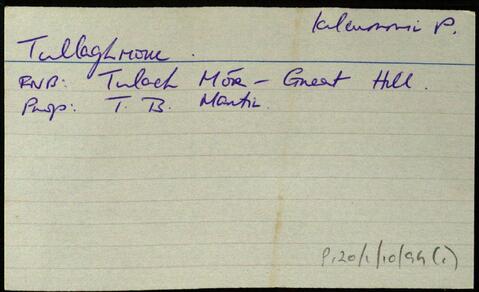 Kilcummin P.
Tullaghmore.
RNB: Tulach Mór - Great Hill.
Prop: T. B. Martin.
P.120/1/10/99(1)